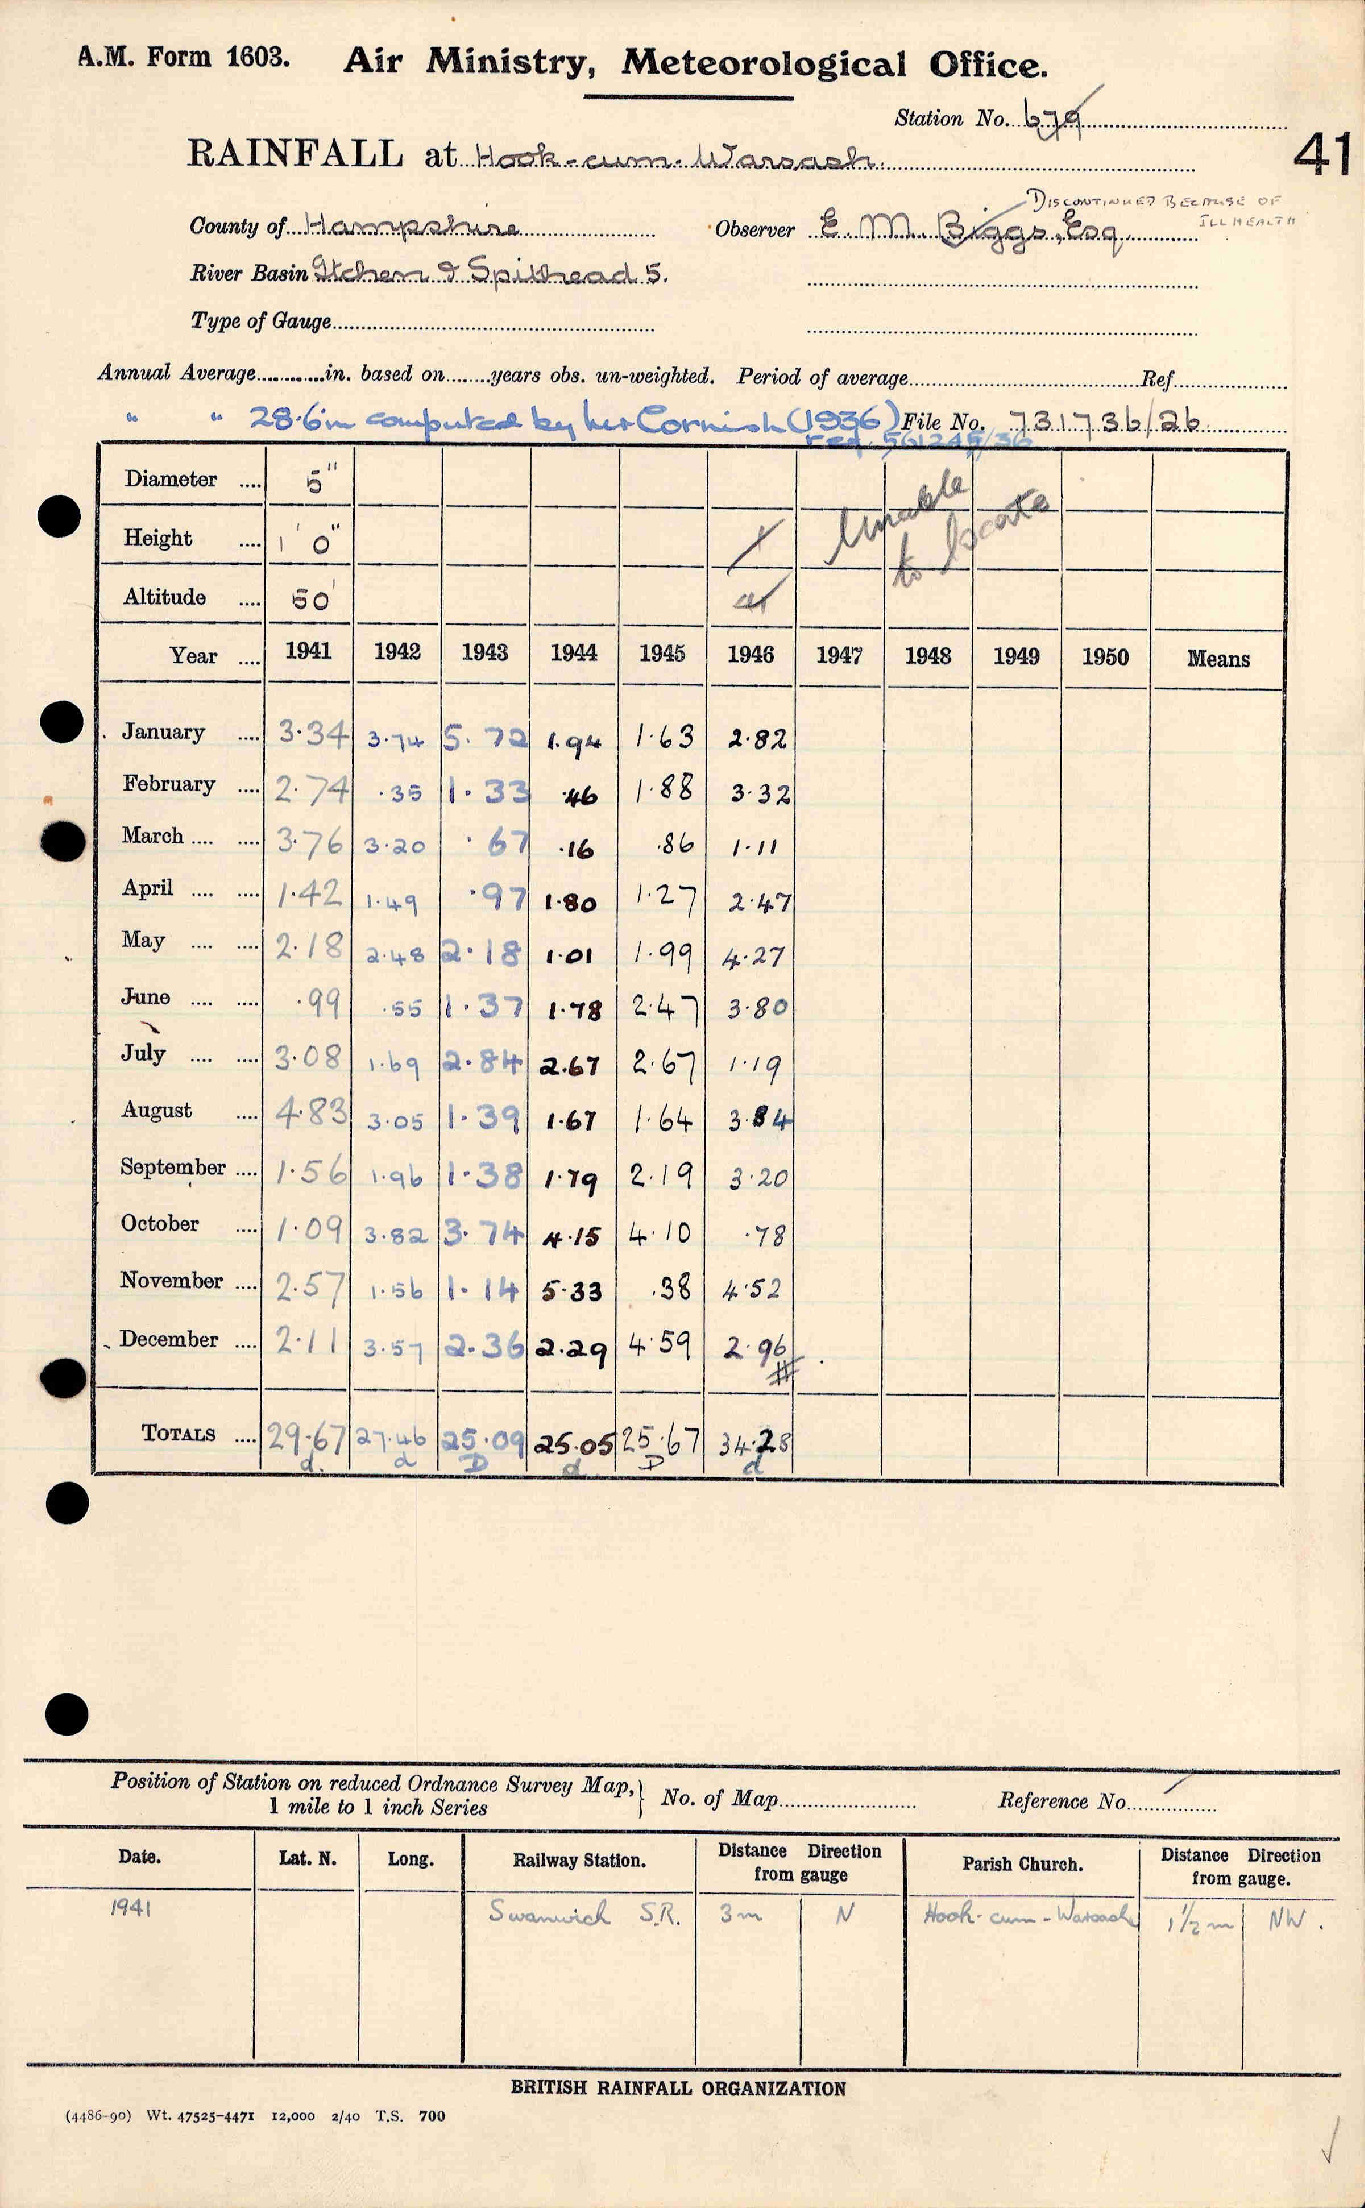 A.M. Form 1603. Air Ministry, Meteorological Office.
Station No. 679
RAINFALL at Hook-cum-Warsash.
41
DISCONTINUED BECAUSE OF
ILL HEALTH
County of Hampshire Observer E. M. Biggs, Esq
River Basin Itchen & Spithead 5.
Type of Gauge
Annual Average in. based on years obs. un-weighted. Period of average Ref
" " 28.6in computed by Mr Cornish (1936) File No. 731736/26
Diameter .... 5"
Height .... 1' 0"
Altitude .... 50'
Unable
to locate
Year .... 1941 1942 1943 1944 1945 1946 1947 1948 1949 1950 Means
January .... 3.34 3.74 5.72 1.94 1.63 2.82
February .... 2.74 .35 1.33 .46 1.88 3.32
March .... .... 3.76 3.20 .67 .16 .86 1.11
April .... .... 1.42 1.49 .97 1.80 1.27 2.47
May .... .... 2.18 2.48 2.18 1.01 1.99 4.27
June .... .... .99 .55 1.37 1.78 2.47 3.80
July .... .... 3.08 1.69 2.84 2.67 2.67 1.19
August .... 4.83 3.05 1.39 1.67 1.64 3.84
September .... 1.56 1.96 1.38 1.79 2.19 3.20
October .... 1.09 3.82 3.74 4.15 4.10 .78
November .... 2.57 1.56 1.14 5.33 .38 4.52
December .... 2.11 3.57 2.36 2.29 4.59 2.96
TOTALS .... 29.67 27.46 25.09 25.05 25.67 34.28
d. d D d D d
Position of Station on reduced Ordnance Survey Map, } No. of Map Reference No.
1 mile to 1 inch Series
Date. Lat. N. Long. Railway Station. Distance Direction from gauge Parish Church. Distance Direction from gauge.
1941 Swanwich S.R. 3m N Hook-cum-Warsash 1½m NW.
BRITISH RAINFALL ORGANIZATION
(4486-90) Wt. 47525-4471 12,000 2/40 T.S. 700